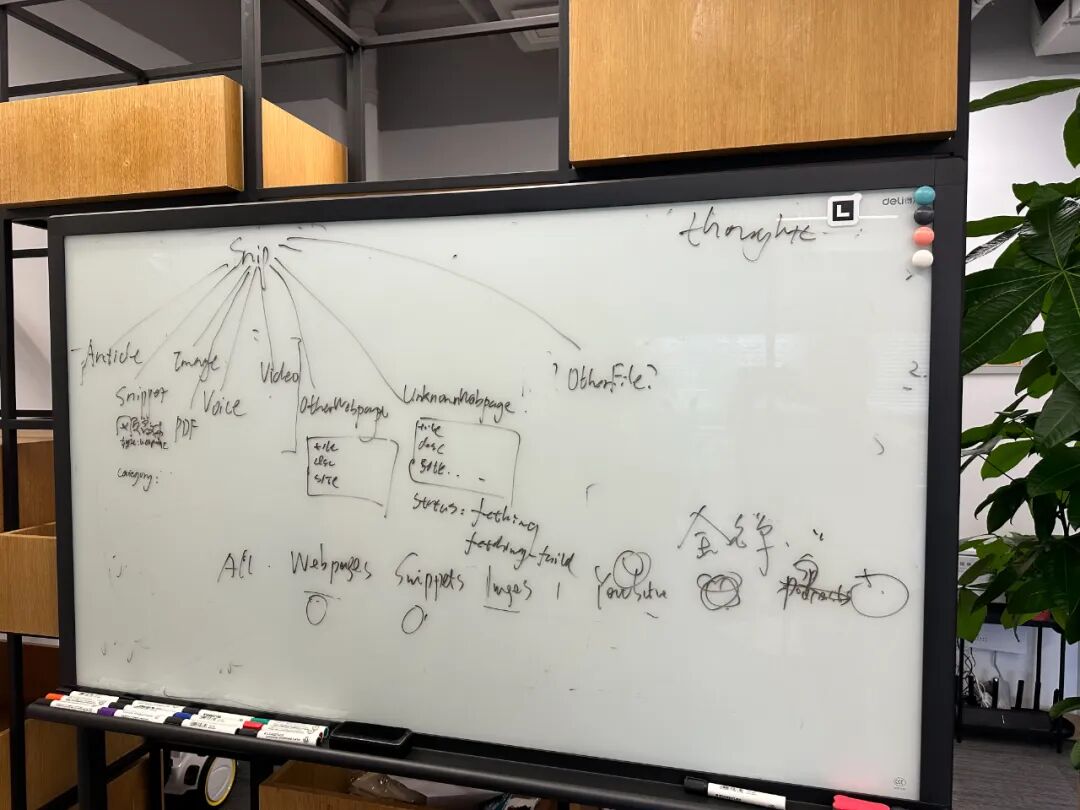 thoughts
L
deli
Snip
Article
Image
Video
? OtherFile?
Snippet
Voice
PDF
OtherWebpage
UnknownWebpage
title
desc
site
title
desc
site..
category:
status: fetching
fetching-faild
2.
All
Webpages
Snippets
Images